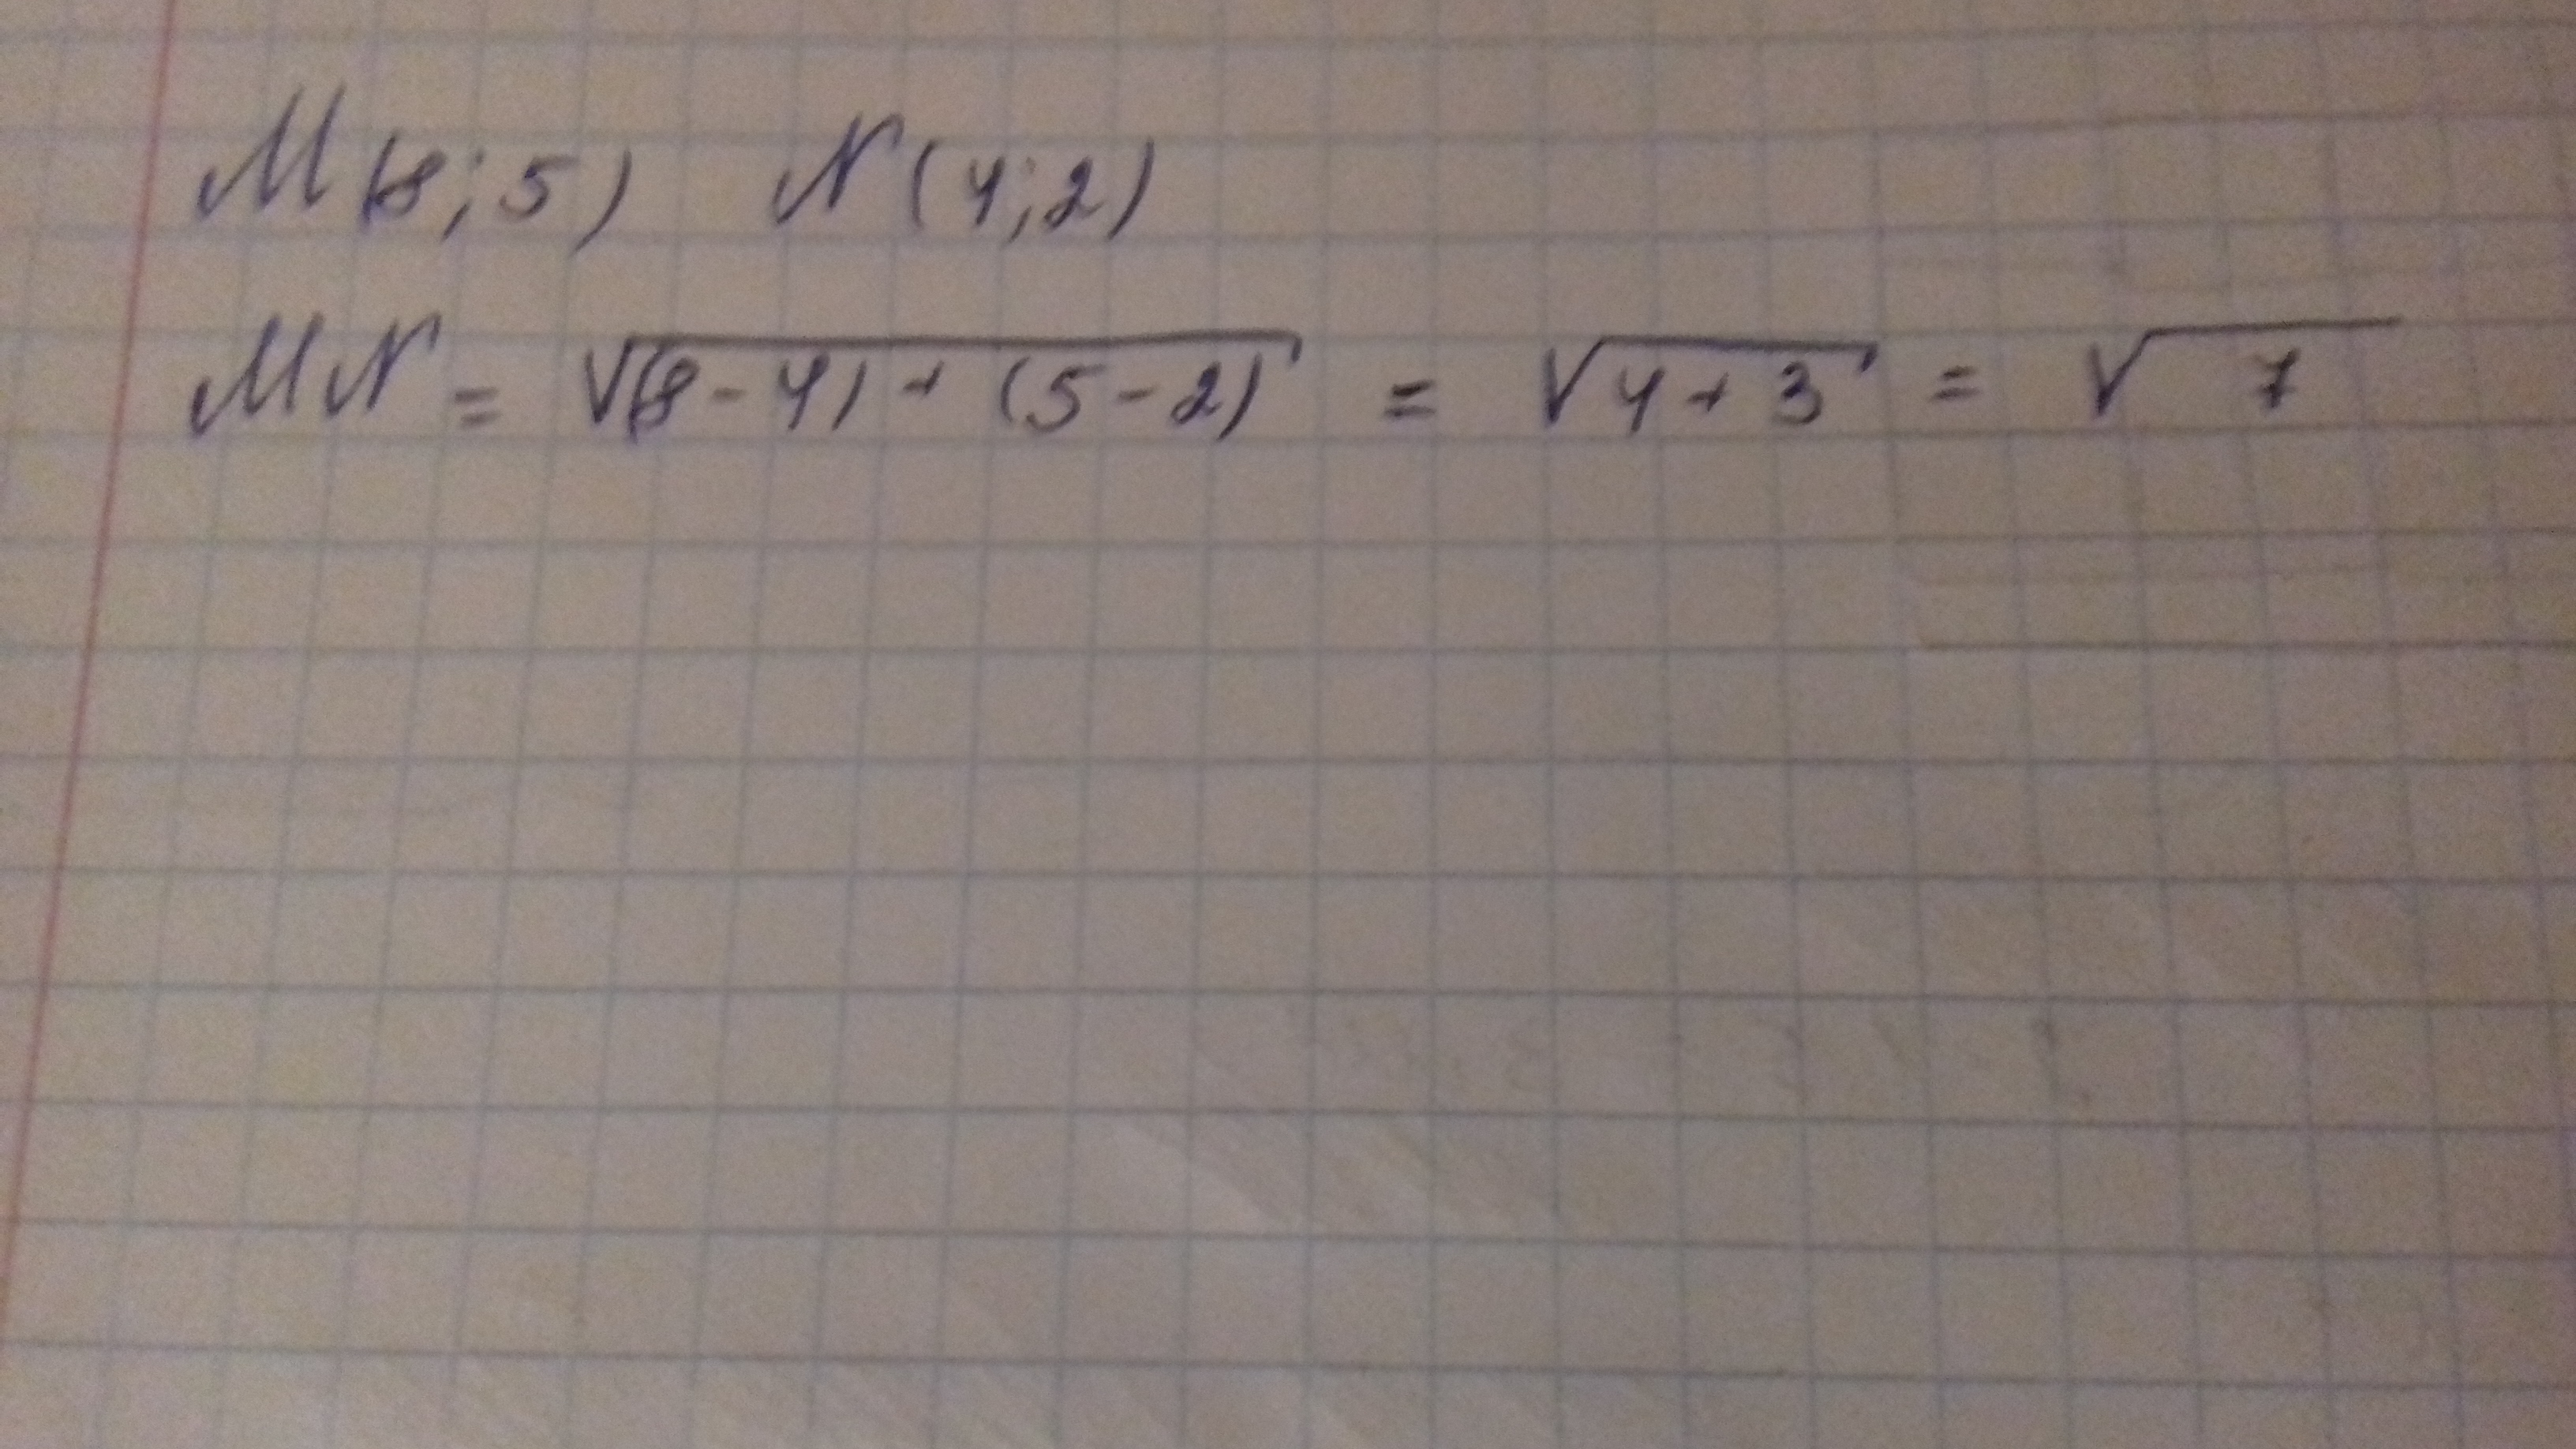 M(8;5) N(4;2)
MN = √(8-4)+(5-2) = √4+3 = √7